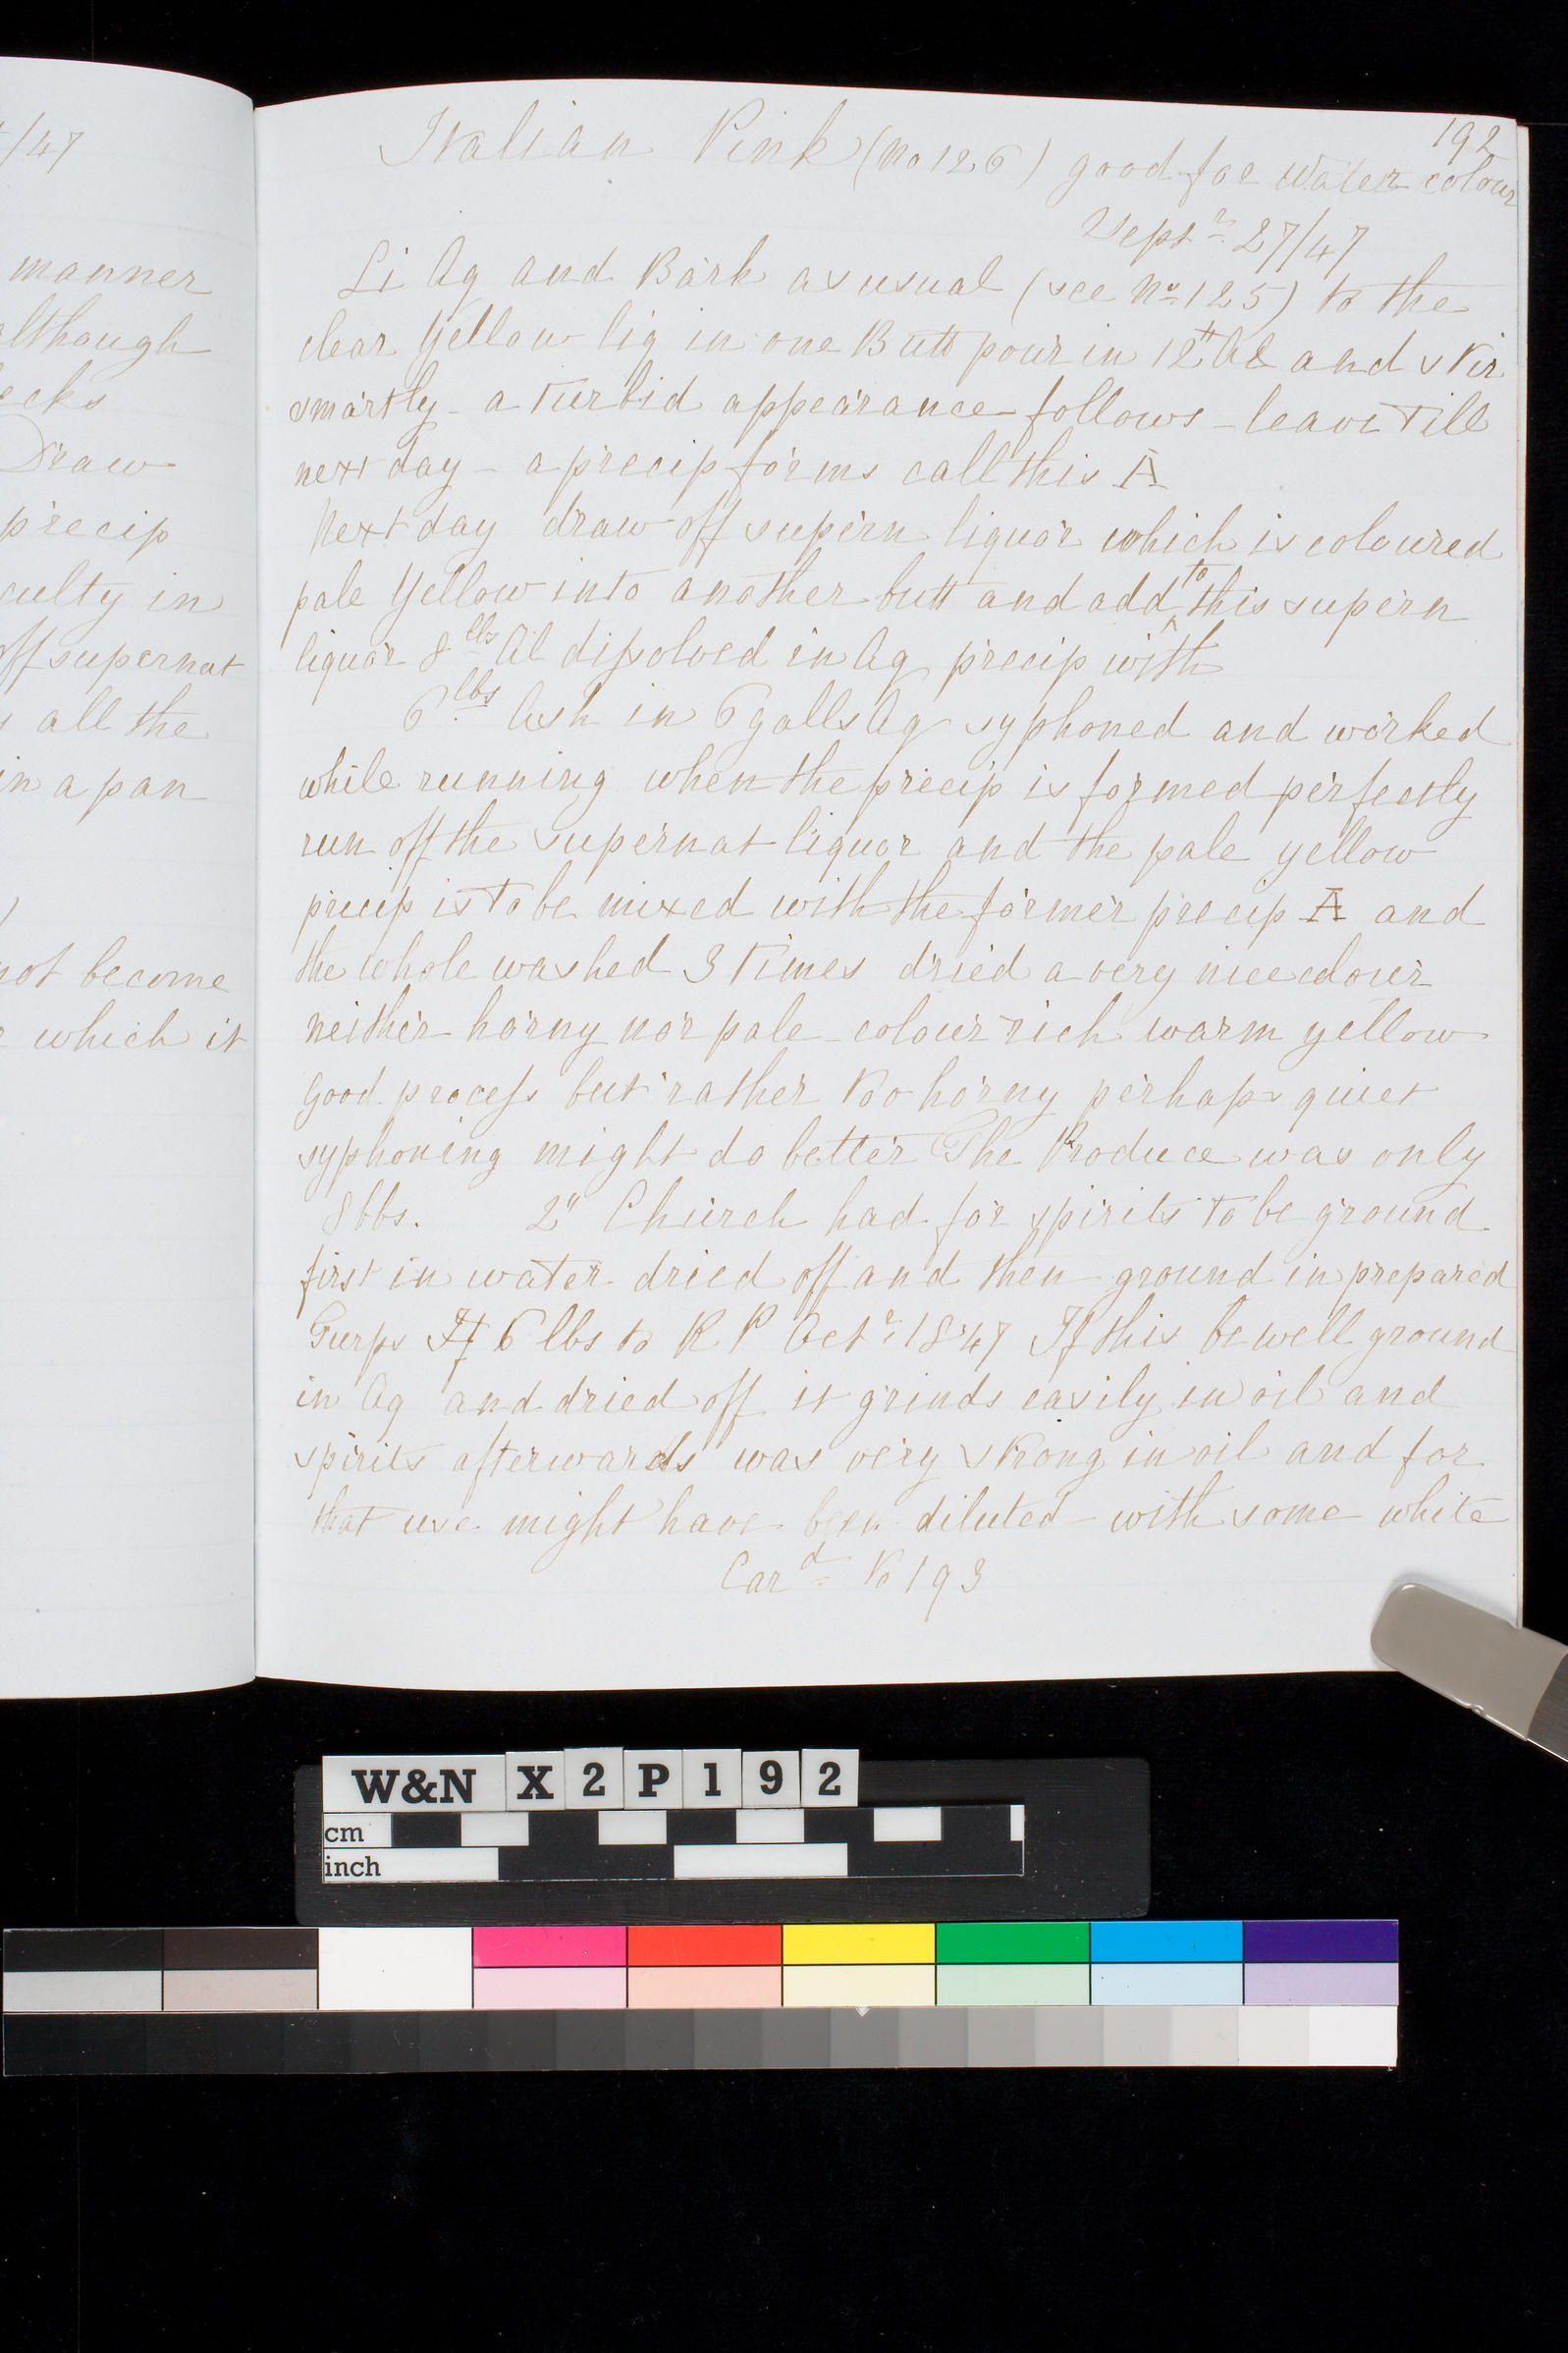 /47
manner
although
ecks
Draw
precip
culty in
off supernat
s all the
in a pan
not become
which it
192
Italian Pink (No 126) good for water colour
Septr 27/47
Li Aq and Bark as usual (see No 125) to the
clear Yellow liq in one Butt pour in 12 lb Al and stir
smartly - a turbid appearance follows - leave till
next day - a precip forms call this A
Next day draw off supern liquor which is coloured
pale Yellow into another butt and add to this supern
liquor 8 lbs Al dissolved in Aq precip with
6 lbs Ash in 6 galls Aq syphoned and worked
while running when the precip is formed perfectly
run off the supernat liquor and the pale yellow
precip is to be mixed with the former precip A and
the whole washed 3 times dried a very nice colour
neither horny nor pale - colour rich warm yellow
Good process but rather too horny perhaps quiet
syphoning might do better The Produce was only
8 lbs. 2" Church had for spirits to be ground
first in water dried off and then ground in prepared
Turps If 6 lbs to R P Octr 1847 If this be well ground
in Aq and dried off it grinds easily in oil and
spirits afterwards was very strong in oil and for
that use might have been diluted with some white
Card to 193
W&N X2P192
cm
inch